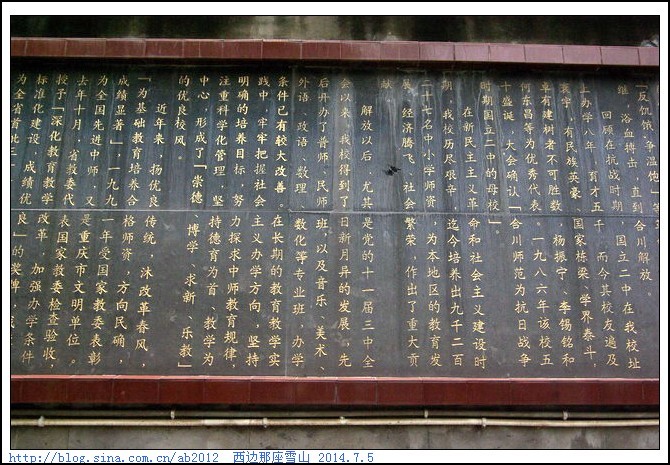 「反饥饿,争温饱」等
继,浴血搏击,直到合川解放。
回顾在抗战时期国立二中在我校址
上办学六年,育才五千,而今其校友遍及
寰宇,有民族英豪、国家栋梁、学界泰斗,
卓有建树者不可胜数,杨振宁、李锡铭和
何东昌等为优秀代表。一九八六年该校五
十盛诞,大会确认「合川师范为抗日战争
时期国立二中的母校」。
在新民主主义革命和社会主义建设时
期,我校历尽艰辛,迄今培养出九千二百
二十七名中小学师资,为本地区的教育发
展,经济腾飞、社会繁荣,作出了重大贡
献。
解放以后,尤其是党的十一届三中全
会以来,我校得到了日新月异的发展,先
后开办了普师、民师班,以及音乐、美术、
外语、政语、数理、数化等专业班,办学
条件已有较大改善。在长期的教育教学实
践中,牢牢把握社会主义办学方向,坚持
明确的培养目标,努力探求中师教育规律,
注重科学化管理,坚持德育为首,教学为
中心,形成了「崇德、博学、求新、乐教」
的优良校风。
近年来,扬优良传统,沐改革春风,
「为基础教育培养合格师资,方向民确,
成绩显著」,一九九一年受国家教委表彰
为全国先进中师,又是重庆市文明单位。
去年十月,省教委代表国家教委检查验收,
授予「深化教育教学改革,加强办学条件
标准化建设,成绩优良」的奖牌,成
为全省首批三
http://blog.sina.com.cn/ab2012 西边那座雪山 2014.7.5